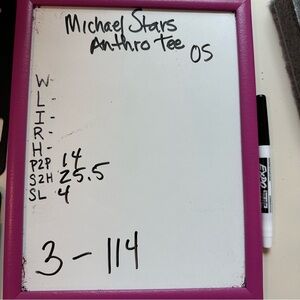 Michael Stars
Anthro Tee
OS
W-
L-
I-
R-
H-
P2P 14
S2H 25.5
SL 4
3-114
EXPO